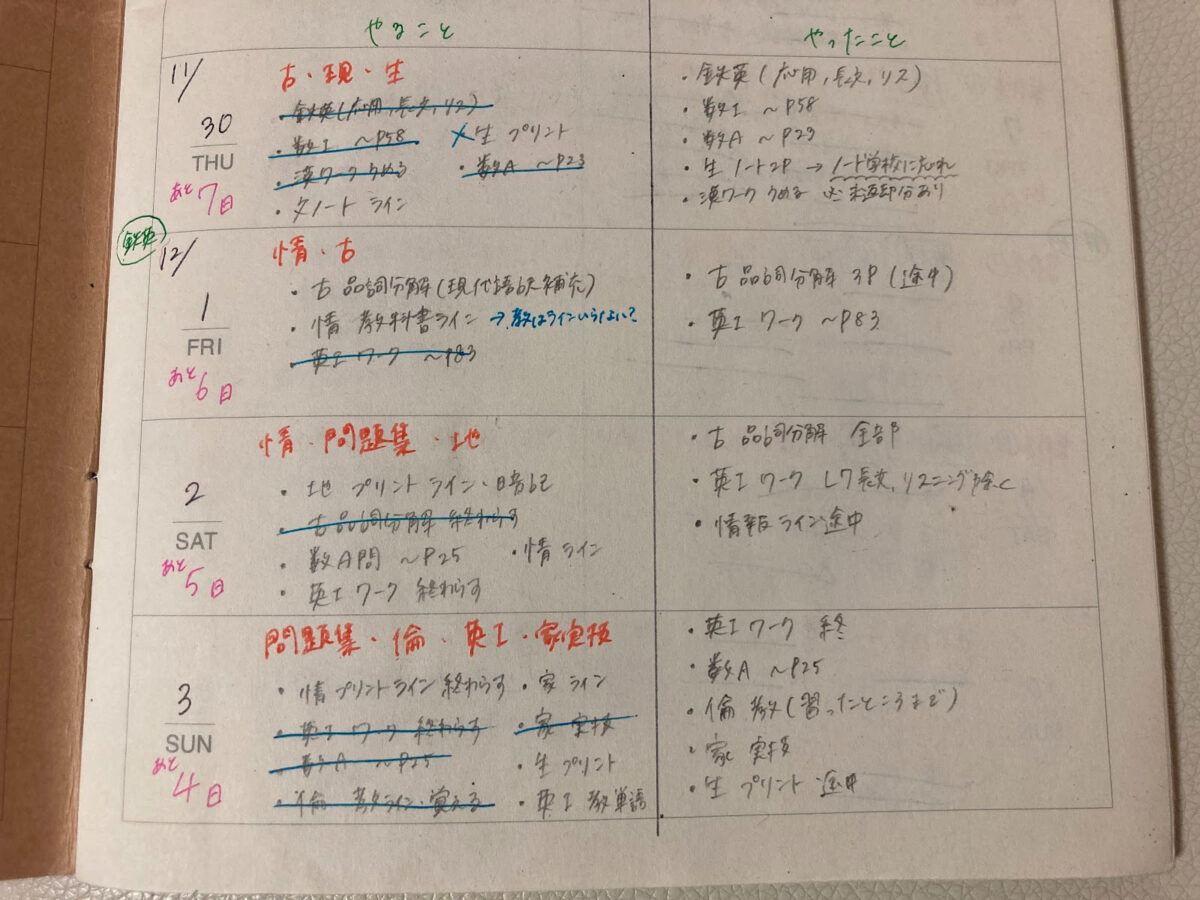 やること やったこと
11/
30
THU
あと7日
古・現・生
・鉄英(応用,長文,リス)
・数Ⅰ ~P58 ×生 プリント
・漢ワーク うめる ・数A ~P23
・文ノート ライン
・鉄英(応用,長文,リス)
・数Ⅰ ~P58
・数A ~P23
・生 ノート2P → ノート学校に忘れ
・漢ワーク うめる ※未返却分あり
鉄英
12/
1
FRI
あと6日
情・古
・古 品詞分解(現代語訳補充)
・情 教科書ライン →教はラインいらしい?
・英Ⅰ ワーク ~P83
・古 品詞分解 3P (途中)
・英Ⅰ ワーク ~P83
2
SAT
あと5日
情・問題集・地
・地 プリント ライン・暗記
・古品詞分解 終わらす
・数A問 ~P25 ・情 ライン
・英Ⅰ ワーク 終わらす
・古 品詞分解 全部
・英Ⅰ ワーク L7長文,リスニング除く
・情報 ライン途中
3
SUN
あと4日
問題集・倫・英Ⅰ・家実技
・情プリントライン終わらす ・家 ライン
・英Ⅰ ワーク 終わらす ・家 実技
・数A ~P25 ・生 プリント
・倫 教ライン・覚える ・英Ⅰ 教単語
・英Ⅰ ワーク 終
・数A ~P25
・倫 教(習ったところまで)
・家 実技
・生 プリント 途中